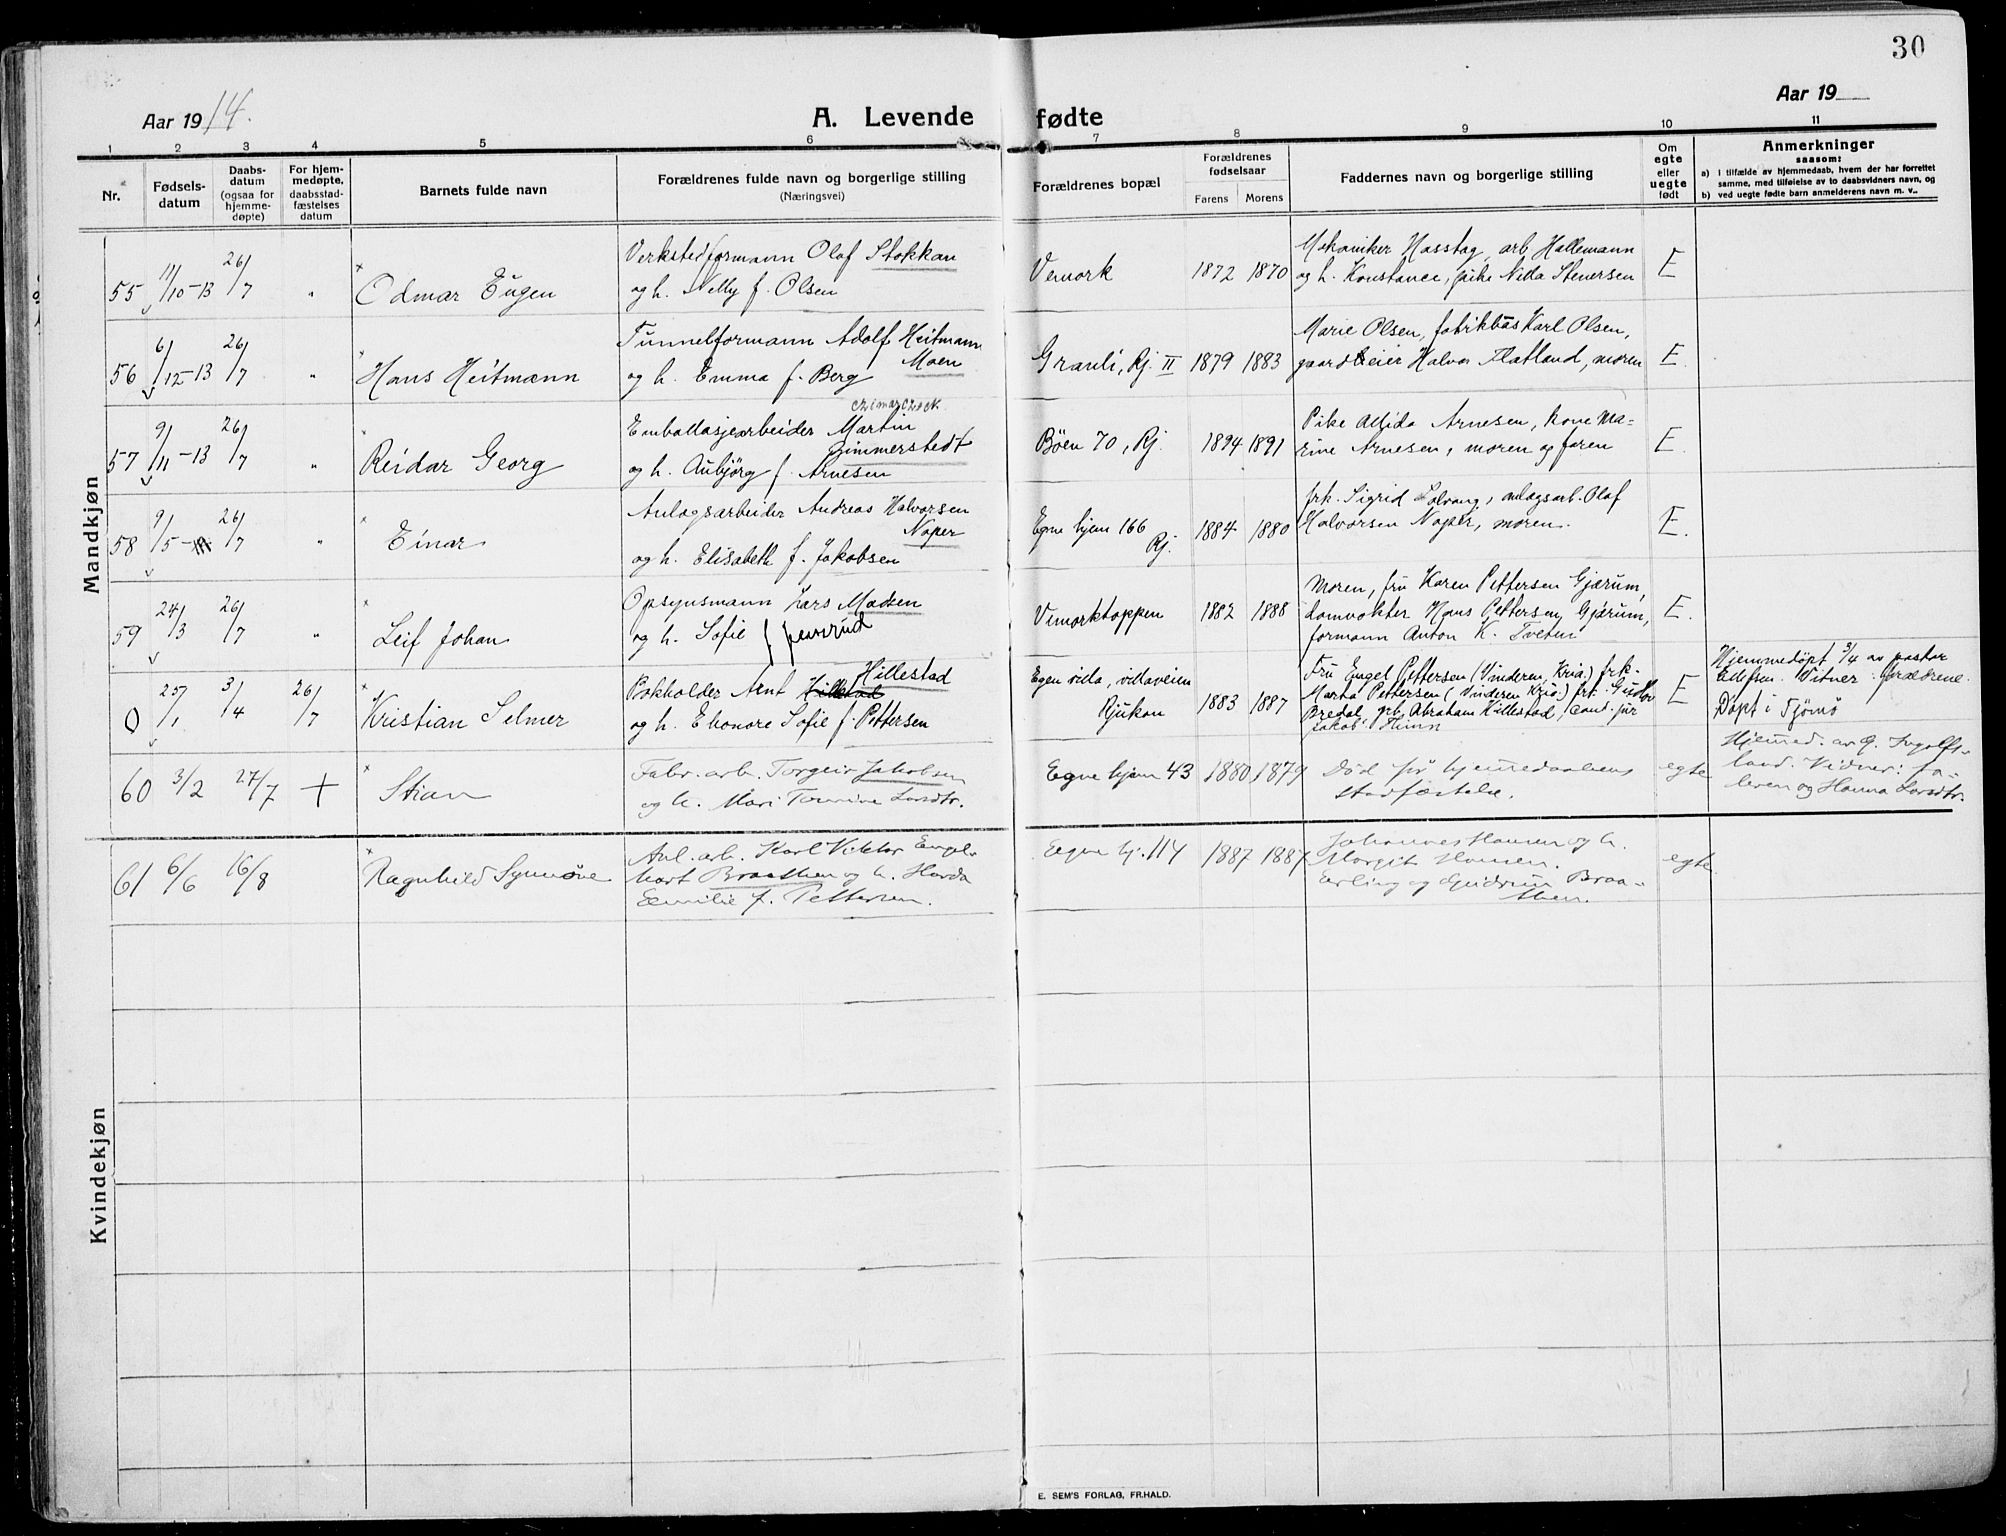 30
Aar 1914.
A. Levende fødte
Aar 19
1 2 3 4 5 6 7 8 9 10 11
Nr.
Fødsels-
datum
Daabs-
datum
(ogsaa for
hjemme-
døpte)
For hjem-
medøpte,
daabsstad-
fæstelses
datum
Barnets fulde navn
Forældrenes fulde navn og borgerlige stilling
(Næringsvei)
Forældrenes bopæl
Forældrenes
fødselsaar
Farens Morens
Faddernes navn og borgerlige stilling
Om
egte
eller
uegte
født
Anmerkninger
saasom:
a) i tilfælde av hjemmedaab, hvem der har forrettet
samme, med tilføielse av to daabsvidners navn, og
b) ved uegte fødte barn anmelderens navn m. v..
Mandkjøn
55 11/10-13 26/7 " Odmar Eugen
Verkstedformann Olaf Stokkan
og h. Nelly f. Olsen
Vemork 1872 1870
Mekaniker Hasstag, arb Hallemann
og h. Konstance, pike Nilla Stenersen
E
56 6/12-13 26/7 " Hans Heitmann
Tunnelformann Adolf Heitmann
Moen
og h. Emma f. Berg
Granli, Rj. II 1879 1883
Marie Olsen, fabrikbas Karl Olsen,
gaardeier Halvor Flatland, moren
E.
57 9/11-13 26/7 " Reidar Georg
czimarczick
Emballasjearbeider Martin
Zimmerstedt
og h. Aubjørg f. Arnesen
Bøen 70, Rj. 1894 1891
Pike Alfida Arnesen, kone Ma=
rine Arnesen, moren og faren
E.
58 9/5 26/7 " Einar
Anlagsarbeider Andreas Halvorsen
Noper
og h. Elisabeth f. Jakobsen
Egne hjem 166
Rj. 1884 1880
frk. Sigrid Solvang, anlagsarb. Olaf
Halvorsen Noper, moren.
E.
59 24/3 26/7 " Leif Johan
Opsynsmann Lars Madsen
og h. Sofie f
Vemorktoppen 1882 1888
Moren, fru Karen Pettersen Gjærum,
damvokter Hans Pettersen Gjærum,
formann Anton K. Tvetun
E.
0 25/1 3/4 26/7 Kristian Selmer
Hillestad
Bokholder Arnt
og h. Elionore Sofie f. Pettersen
Egen villa, villaveien
Rjukan 1883 1887
Fru Engel Pettersen (Vinderen, Kria.) frk.
Marta Pettersen (Vinderen Kria.) frk. Gudlor
Bredal, grb. Abraham Hillestad, cand. jur
Jakob
E
Hjemmedøpt 3/4 av pastor
Ellefsen. Vitner: forældrene.
Døpt i Tjømø
60 3/2 27/7 + Stian
Fabr. arb. Torgeir Jakobsen
og h. Mari Tomine Larsdtr.
Egne hjem 43 1880 1879
Død før hjemmedaabens
stadfæstelse.
egte
Hjemmed. av G. Ingolfs-
land. Vidner: fa-
deren og Hanna Larsdtr.
Kvindekjøn
61 6/6 16/8 Ragnhild Synnøve
Anl. arb. Karl Viktor Engel-
hart Braathen og h. Harda
Emilie f. Pettersen.
Egne hj. 114 1887 1887
Johannes Hansen og h.
Margit Hansen.
Erling og Gudrun Braa-
then.
egte
E. SEM'S FORLAG, FR.HALD.